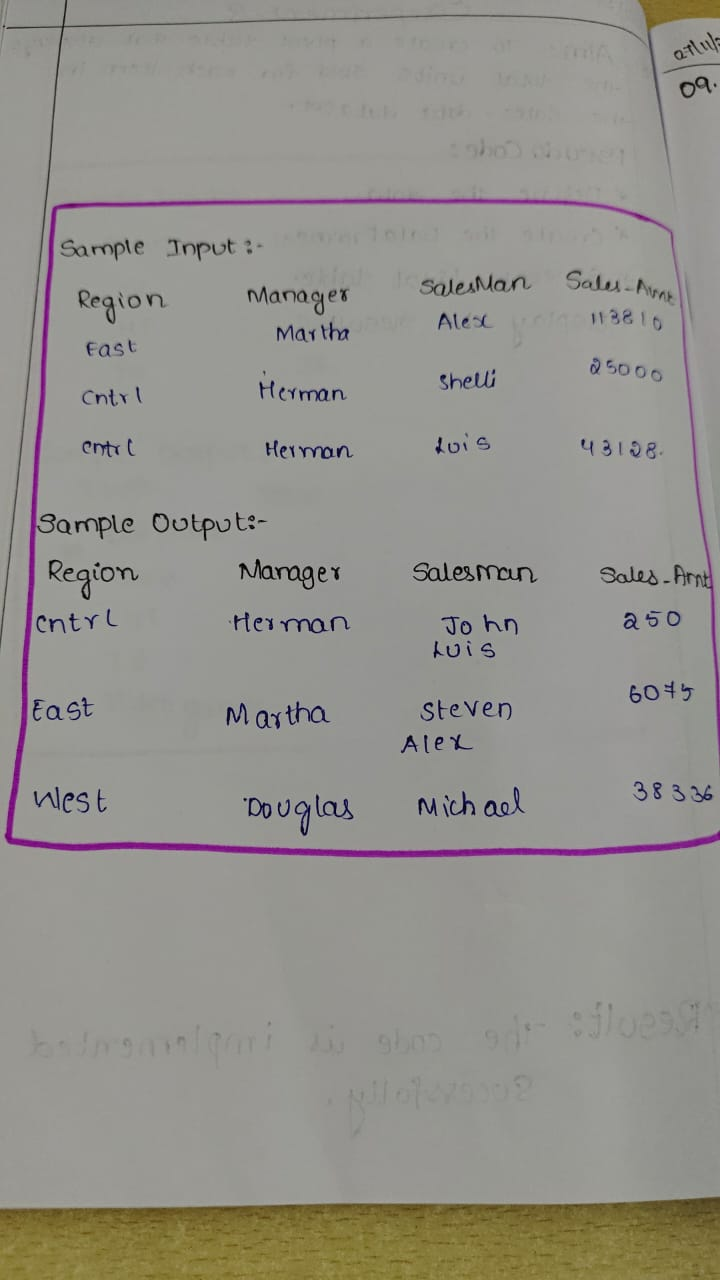 09.
Sample Input :-
Region Manager SalesMan Sales-Amt
East Martha Alex 113810
Cntrl Herman Shelli 25000
Cntrl Herman Luis 43128.
Sample Output:-
Region Manager Salesman Sales-Amt
Cntrl Herman John 250
Luis
East Martha Steven 6075
Alex
West Douglas Michael 38336